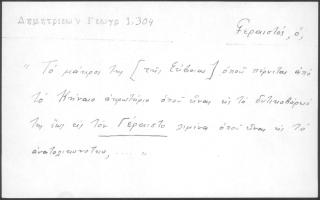 Δημητριέων Γεωγρ 1.304
Γεραιστός, ὁ,
" Τὸ μάκρος της [τῆς Εὐβοίας] ὁποῦ πέρνεται ἀπὸ
τὸ Κήναιο ἀκρωτήριο ὁποῦ εἶναι εἰς τὸ δυτικοβόρειό
της ἕως εἰς τὸν Γέραιστο λιμένα ὁποῦ εἶναι εἰς τὸ
ἀνατολικονότιο, .... "